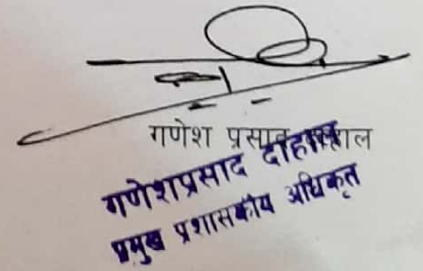 गणेश प्रसाद दाहाल
गणेशप्रसाद दाहाल
प्रमुख प्रशासकीय अधिकृत